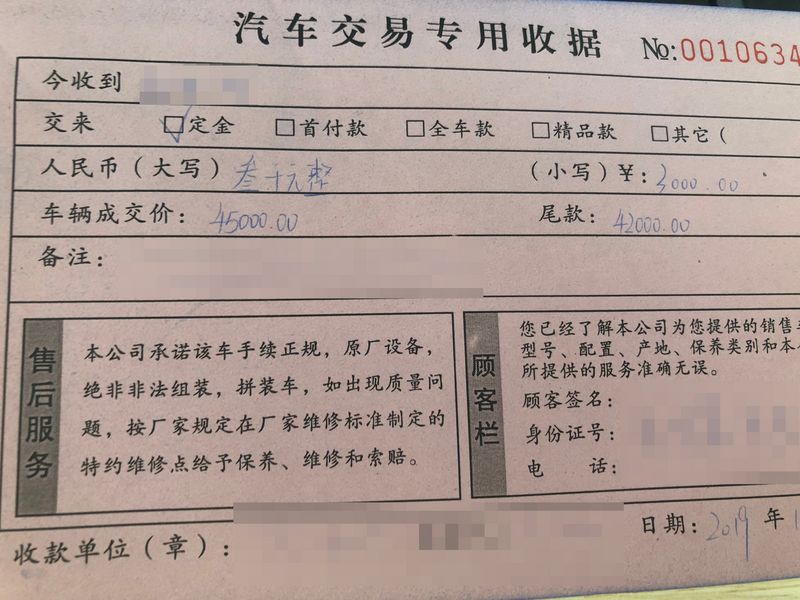 汽车交易专用收据 №:0010634
今收到
交来 ☑定金 □首付款 □全车款 □精品款 □其它（
人民币（大写）叁千元整 （小写）￥:3000.00
车辆成交价：45000.00 尾款：42000.00
备注：
售后服务
本公司承诺该车手续正规，原厂设备，
绝非非法组装，拼装车，如出现质量问
题，按厂家规定在厂家维修标准制定的
特约维修点给予保养、维修和索赔。
顾客栏
您已经了解本公司为您提供的销售
型号、配置、产地、保养类别和本
所提供的服务准确无误。
顾客签名：
身份证号：
电 话：
收款单位（章）：
日期：2019 年 1